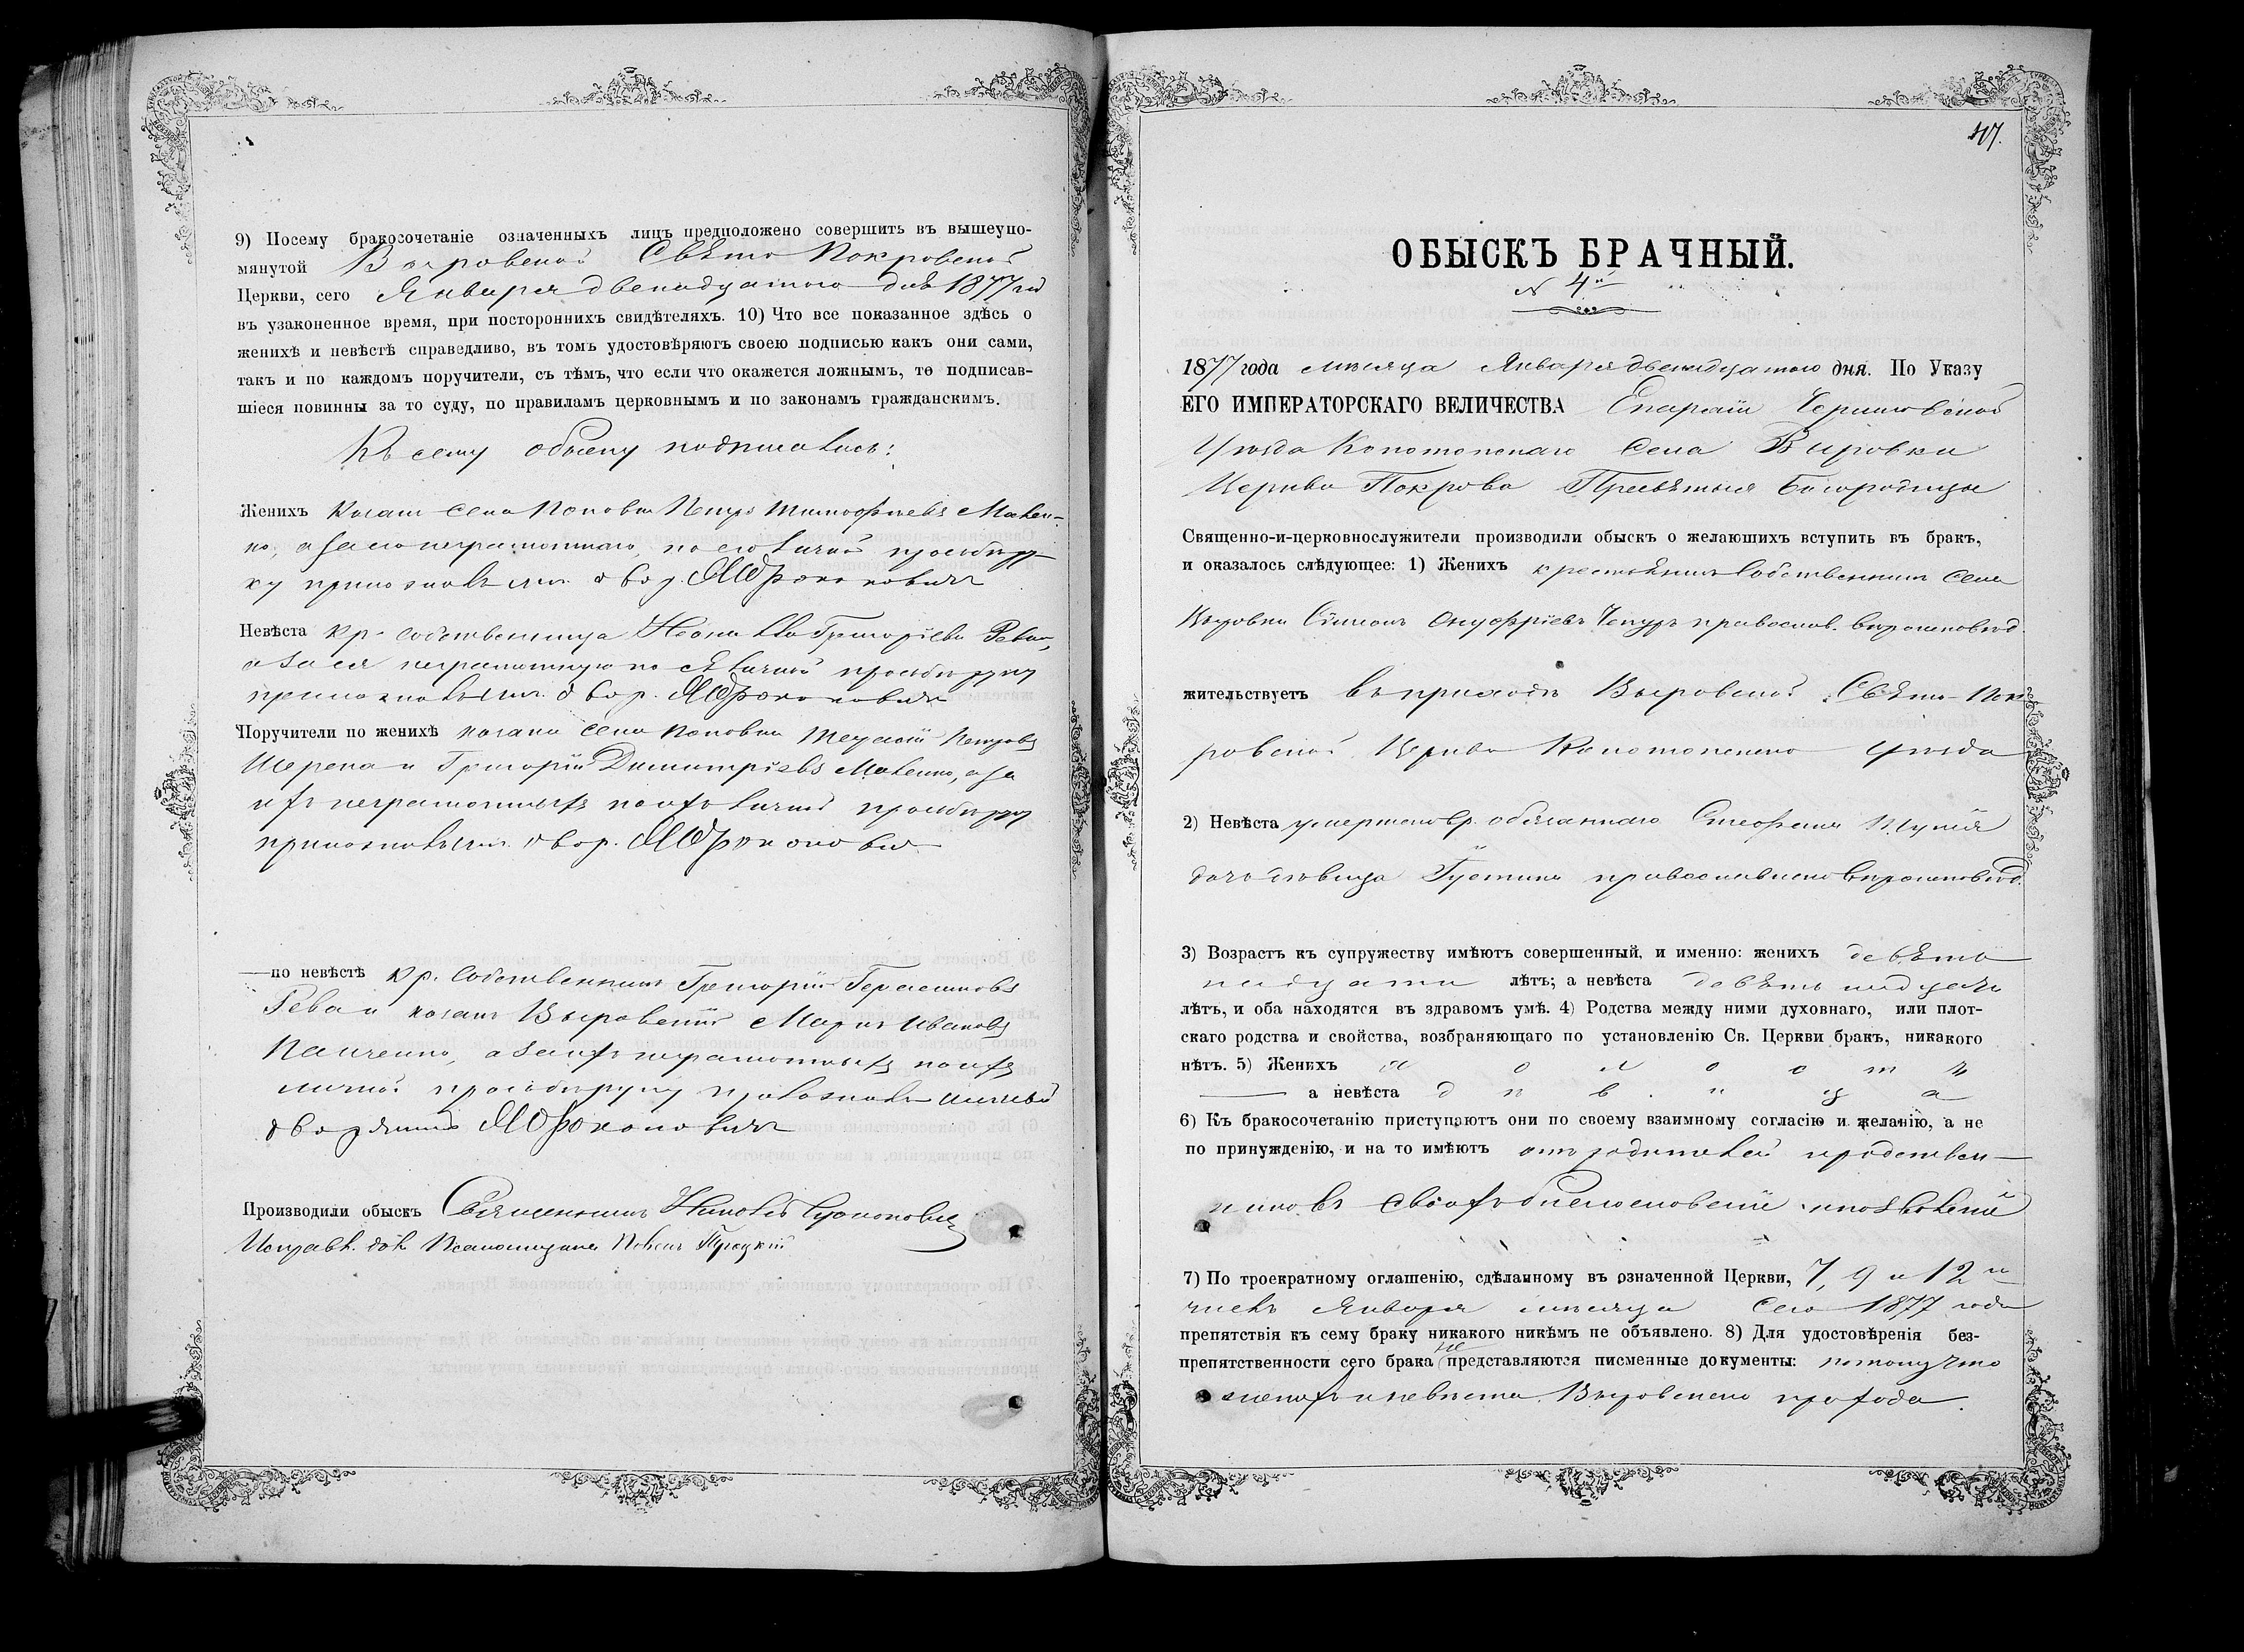 9) Посему бракосочетаніе означенныхъ лицъ предположено совершить въ вышеупо-
мянутой Выровской Свято Покровской
Церкви, сего Января двенадцатого дня 1877 год
въ узаконенное время, при постороннихъ свидѣтеляхъ. 10) Что все показанное здѣсь о
женихѣ и невѣстѣ справедливо, въ томъ удостовѣряютъ своею подписью какъ они сами,
такъ и по каждомъ поручители, съ тѣмъ, что если что окажется ложнымъ, то подписав-
шіеся повинны за то суду, по правиламъ церковнымъ и по законамъ гражданскимъ.
Къ сему обыску подписались:
Женихъ Козакъ села Поповки Петръ Тимофѣевъ
а за его неграмотнаго, по его личной прозьбѣ ру-
ку приложилъ двор.
Невѣста кр. собственница Григоріева Рева,
а за ея неграмотную по ея личной прозьбѣ руку
приложилъ двор.
Поручители по женихѣ козаки села Поповки Петровъ
и Григорій Димитріевъ а за
ихъ неграмотныхъ по ихъ личной прозьбѣ руку
приложилъ двор.
—по невѣстѣ кр. собственникъ Григорій Герасимовъ
Рева и козакъ Выровскій Марко Ивановъ
Панченко, а за ихъ неграмотныхъ по ихъ
личной прозьбѣ руку приложилъ
дворянинъ
Производили обыскъ Священникъ
Исправл. дол. Псаломщика Павелъ Троцкій
47.
ОБЫСКЪ БРАЧНЫЙ.
№ 4й
1877 года мѣсяца Января двенадцатого дня. По Указу
ЕГО ИМПЕРАТОРСКАГО ВЕЛИЧЕСТВА Епархіи Черниговской
Уѣзда Конотопскаго Села Выровки
Церкви Покрова Пресвятыя Богородицы
Священно-и-церковнослужители производили обыскъ о желаюшихъ вступить въ бракъ,
и оказалось слѣдующее: 1) Женихъ крестьянинъ Собственникъ села
Выровки Симеонъ Онуфріевъ Чепуръ православ. вѣроисповѣд.
жительствуетъ въ приходѣ Выровской Свято-Пок-
ровской Церкви Конотопскаго уѣзда
2) Невѣста умершаго вр. обязаннаго Стефана
дочь дѣвица Іустина православнаго вѣроисповѣд.
3) Возрастъ къ супружеству имѣютъ совершенный, и именно: женихъ девять
надцати лѣтъ; а невѣста девять надцать
лѣтъ, и оба находятся въ здравомъ умѣ. 4) Родства между ними духовнаго, или плот-
скаго родства и свойства, возбраняющаго по установленію Св. Церкви бракъ, никакого
нѣтъ. 5) Женихъ х о л о с т ъ
— а невѣста д ѣ в и ц а
6) Къ бракосочетанію приступаютъ они по своему взаимному согласію и желанію, а не
по принужденію, и на то имѣютъ отъ родителей и родствен-
никовъ своихъ благословеніе и позволеніе
7) По троекратному оглашенію, сдѣланному въ означенной Церкви, 7, 9 и 12 го
числъ Января мѣсяца сего 1877 года
препятствія къ сему браку никакого никѣмъ не объявлено. 8) Для удостовѣренія без-
препятственности сего брака не представляются писменные документы: потому что
женихъ и невѣста Выровскаго прихода.